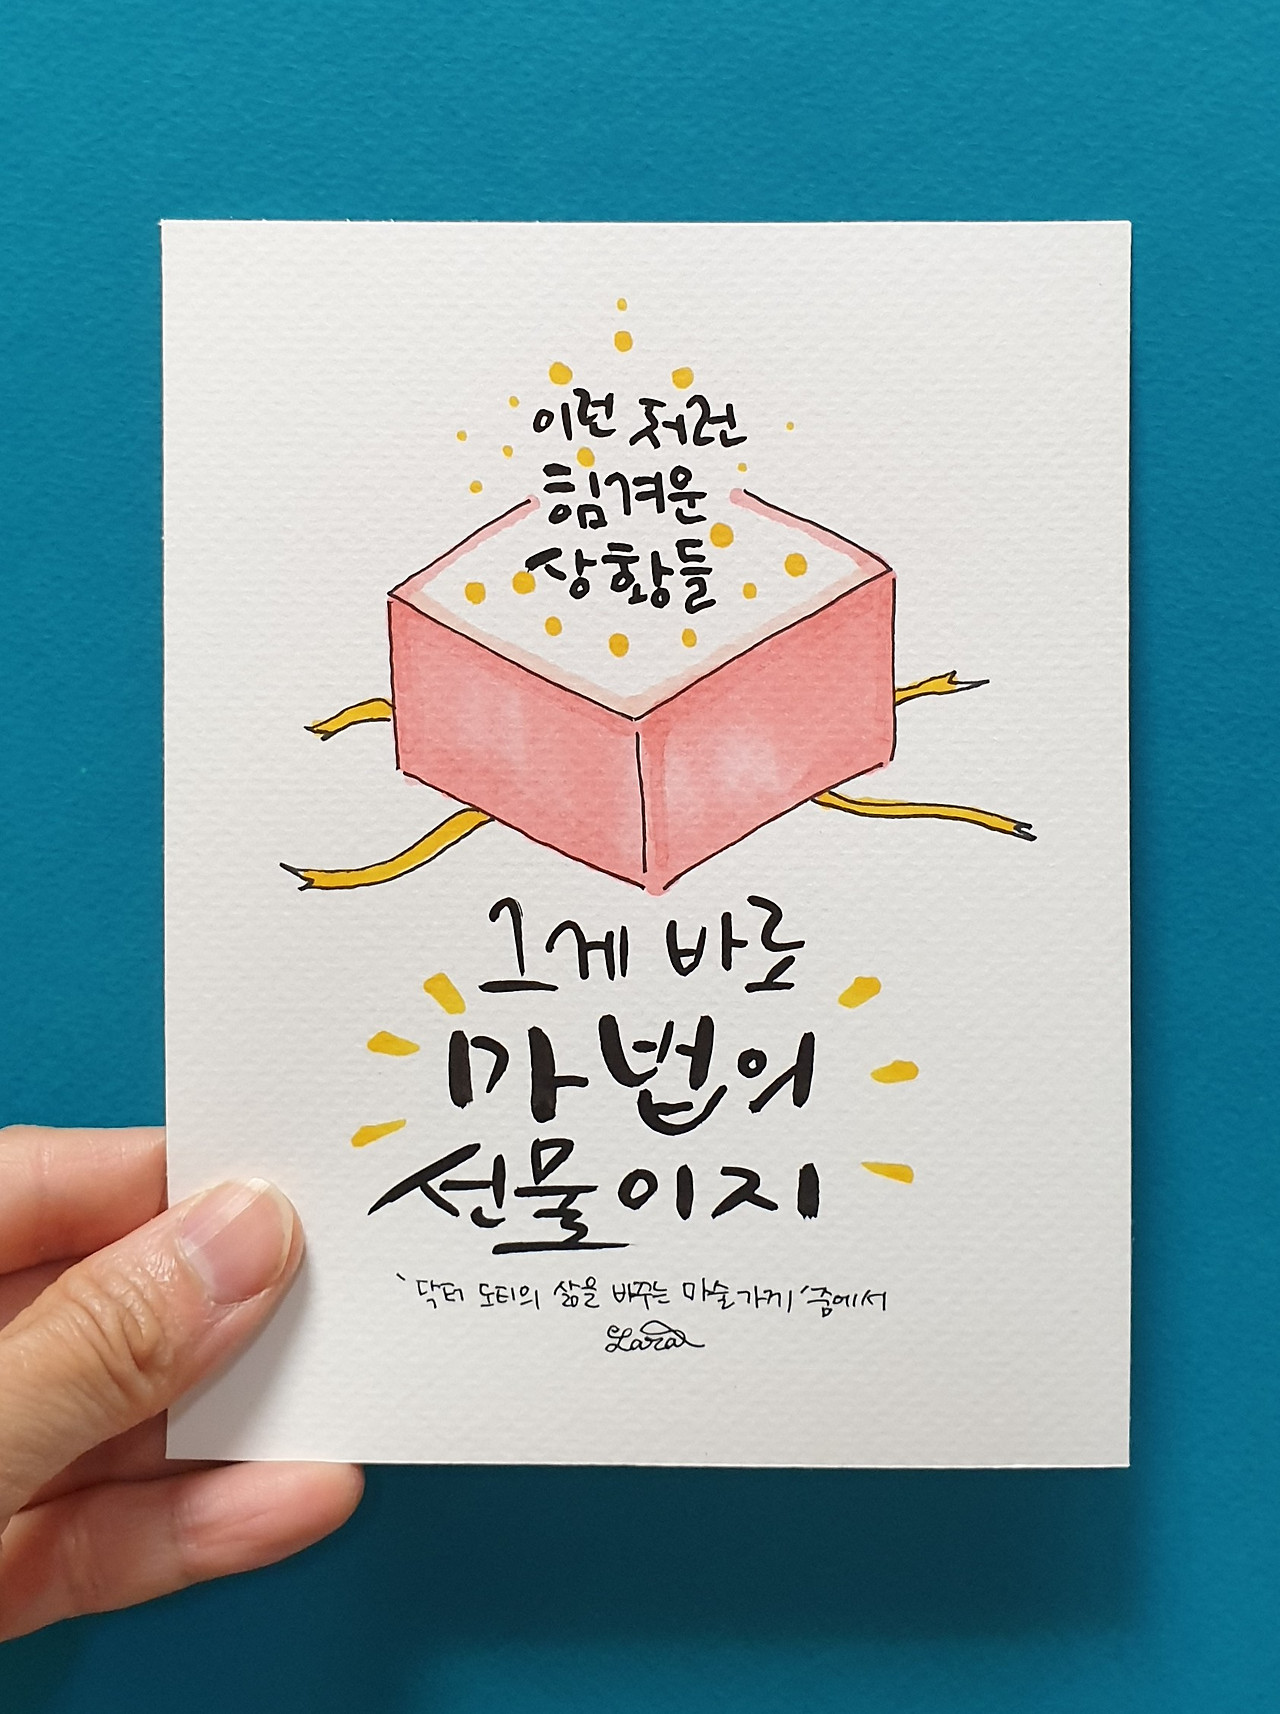 이런 저런
힘겨운
상황들
그게 바로
마법의
선물이지
'닥터 도티의 삶을 바꾸는 마술가게' 중에서
Lara